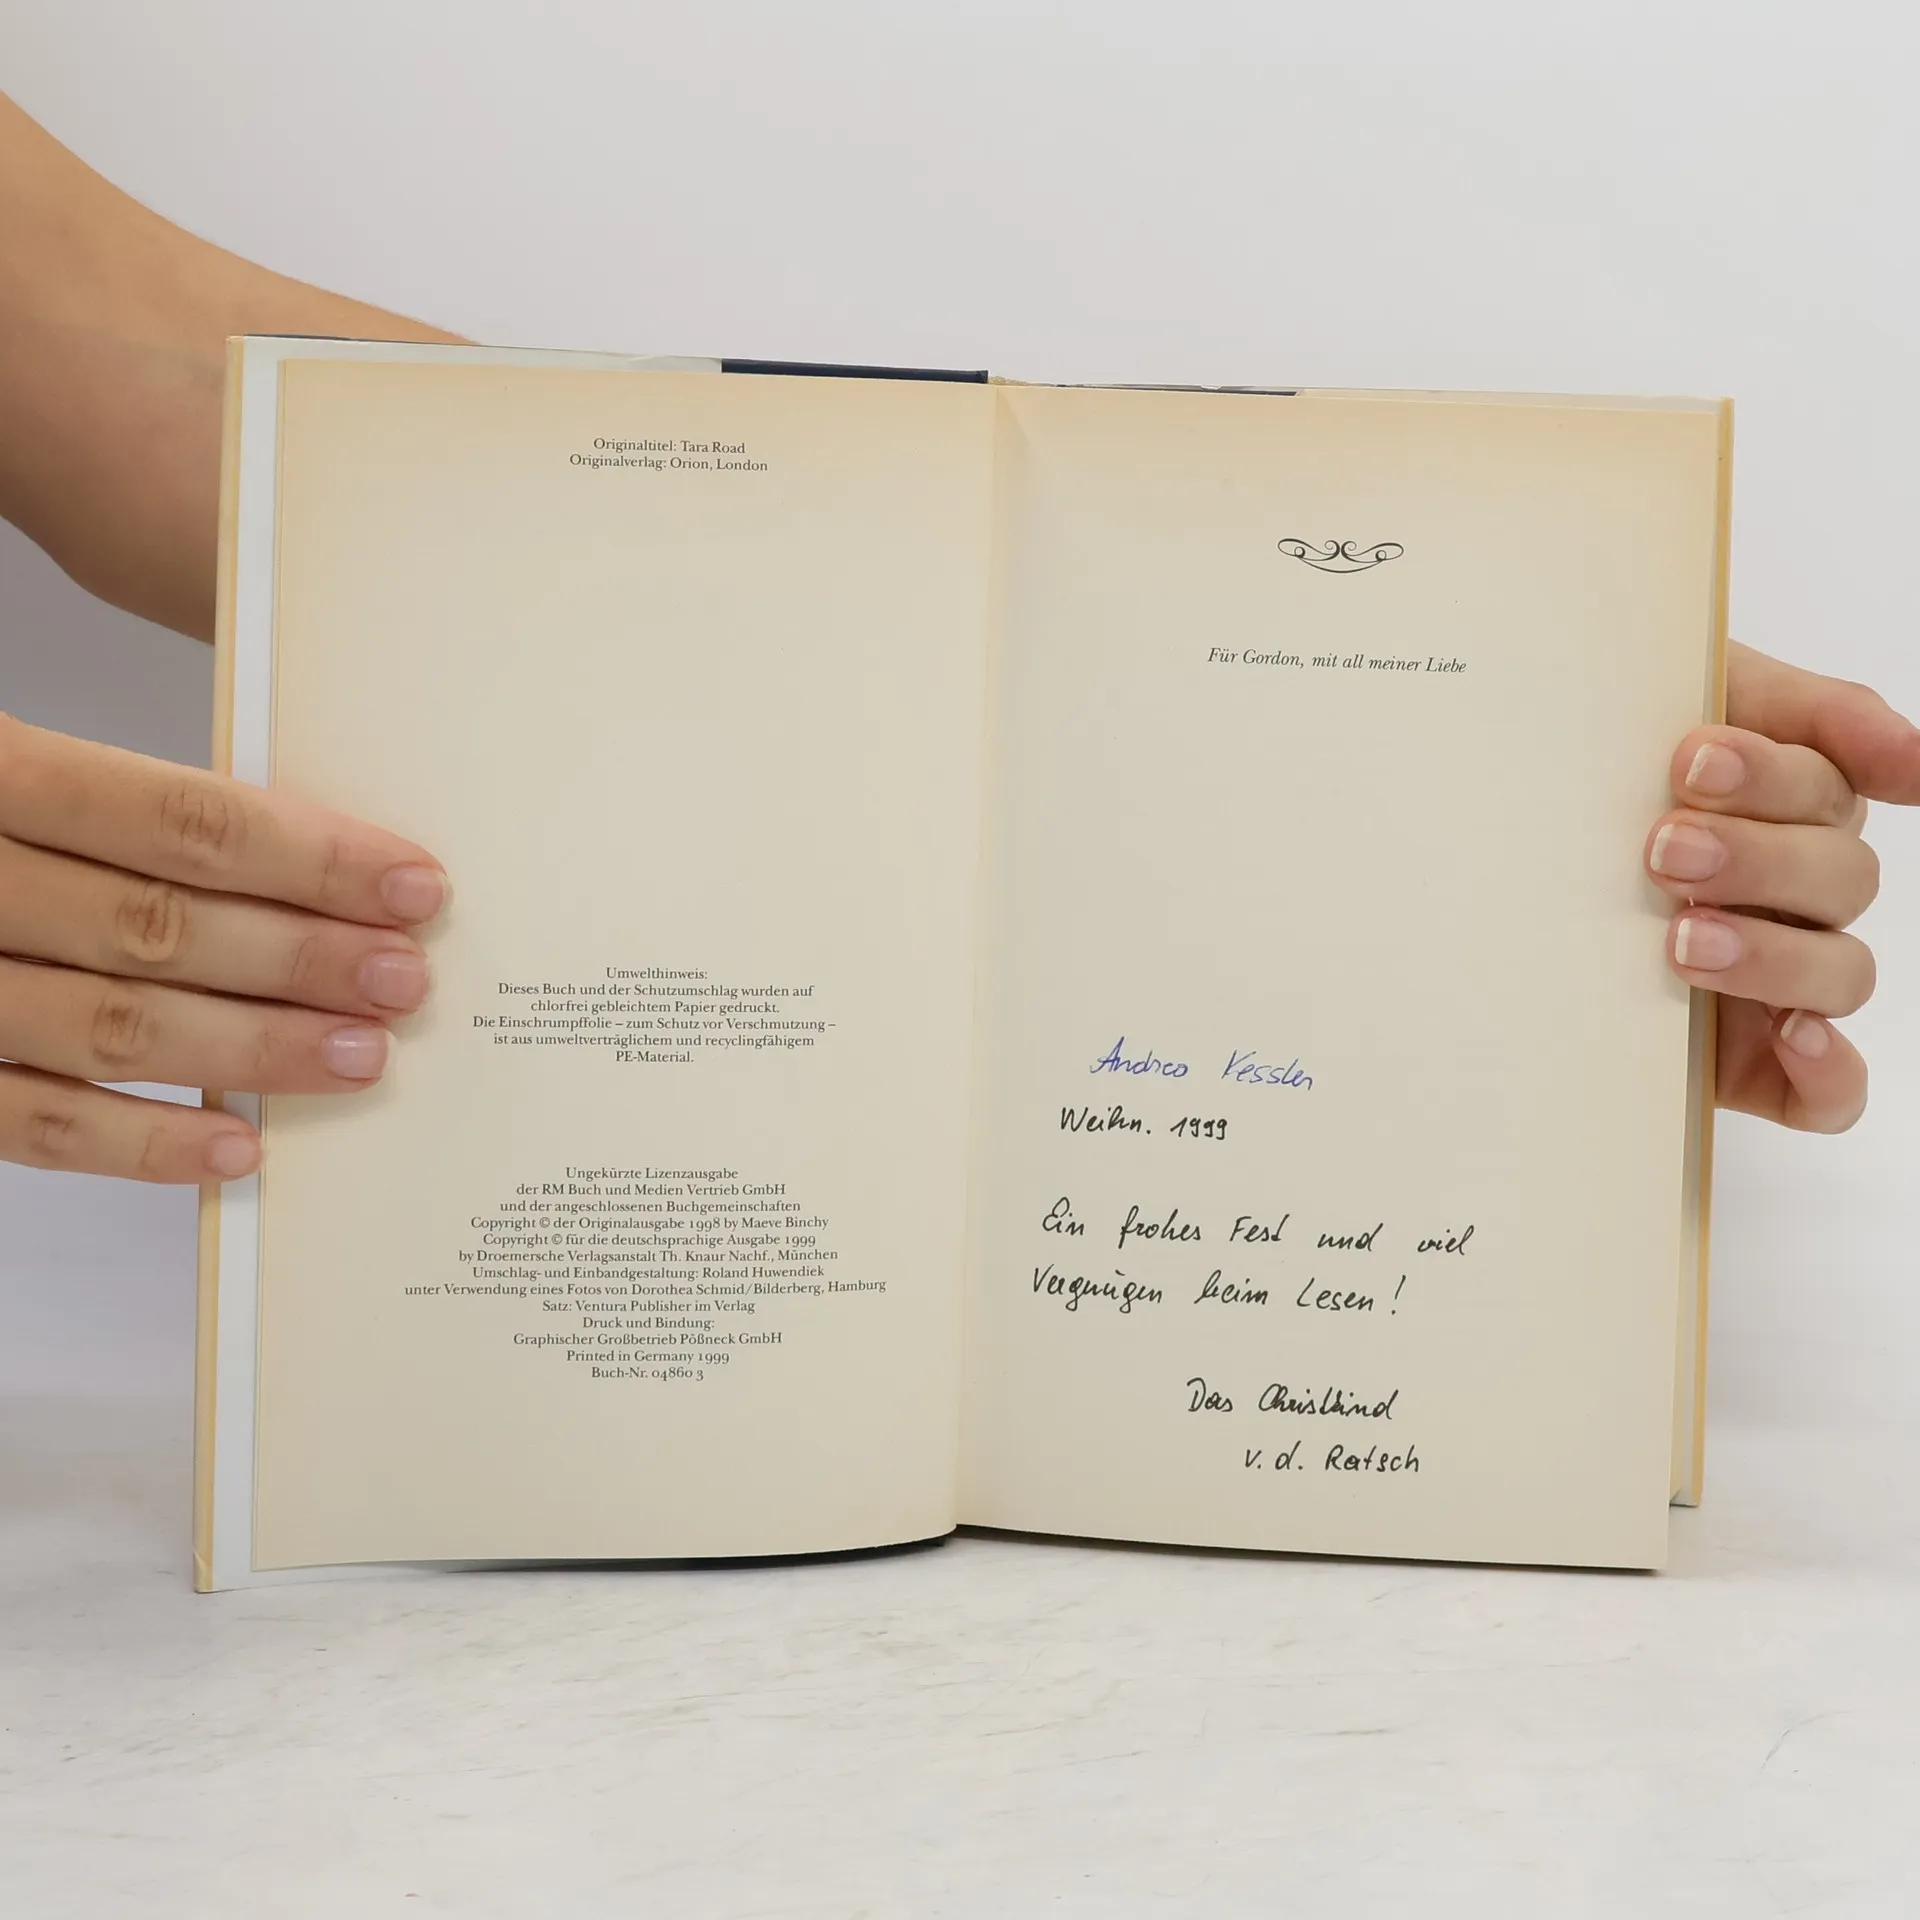 Originaltitel: Tara Road
Originalverlag: Orion, London
Umwelthinweis:
Dieses Buch und der Schutzumschlag wurden auf
chlorfrei gebleichtem Papier gedruckt.
Die Einschrumpffolie – zum Schutz vor Verschmutzung –
ist aus umweltverträglichem und recyclingfähigem
PE-Material.
Ungekürzte Lizenzausgabe
der RM Buch und Medien Vertrieb GmbH
und der angeschlossenen Buchgemeinschaften
Copyright © der Originalausgabe 1998 by Maeve Binchy
Copyright © für die deutschsprachige Ausgabe 1999
by Droemersche Verlagsanstalt Th. Knaur Nachf., München
Umschlag- und Einbandgestaltung: Roland Huwendiek
unter Verwendung eines Fotos von Dorothea Schmid/Bilderberg, Hamburg
Satz: Ventura Publisher im Verlag
Druck und Bindung:
Graphischer Großbetrieb Pößneck GmbH
Printed in Germany 1999
Buch-Nr. 04860 3
Für Gordon, mit all meiner Liebe
Andrea Kessler
Weihn. 1999
Ein frohes Fest und viel
Vergnügen beim Lesen !
Das Christkind
v. d. Ratsch